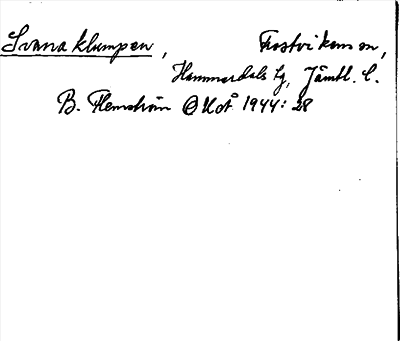 Svanaklumpen, Frostvikens sn,
Hammerdals tg, Jämtl. l.
B. Flemström 1944: 28